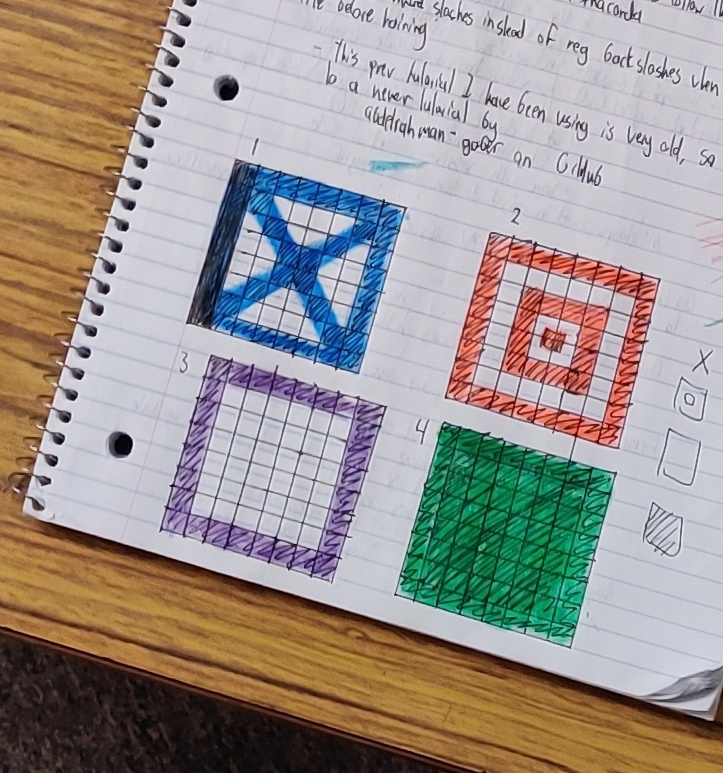 slashes instead of reg backslashes when
before training
- This prev tutorial I have been using is very old, so
to a newer tutorial by
abdelrahman-gaber on GitHub
1
2
3
4
X